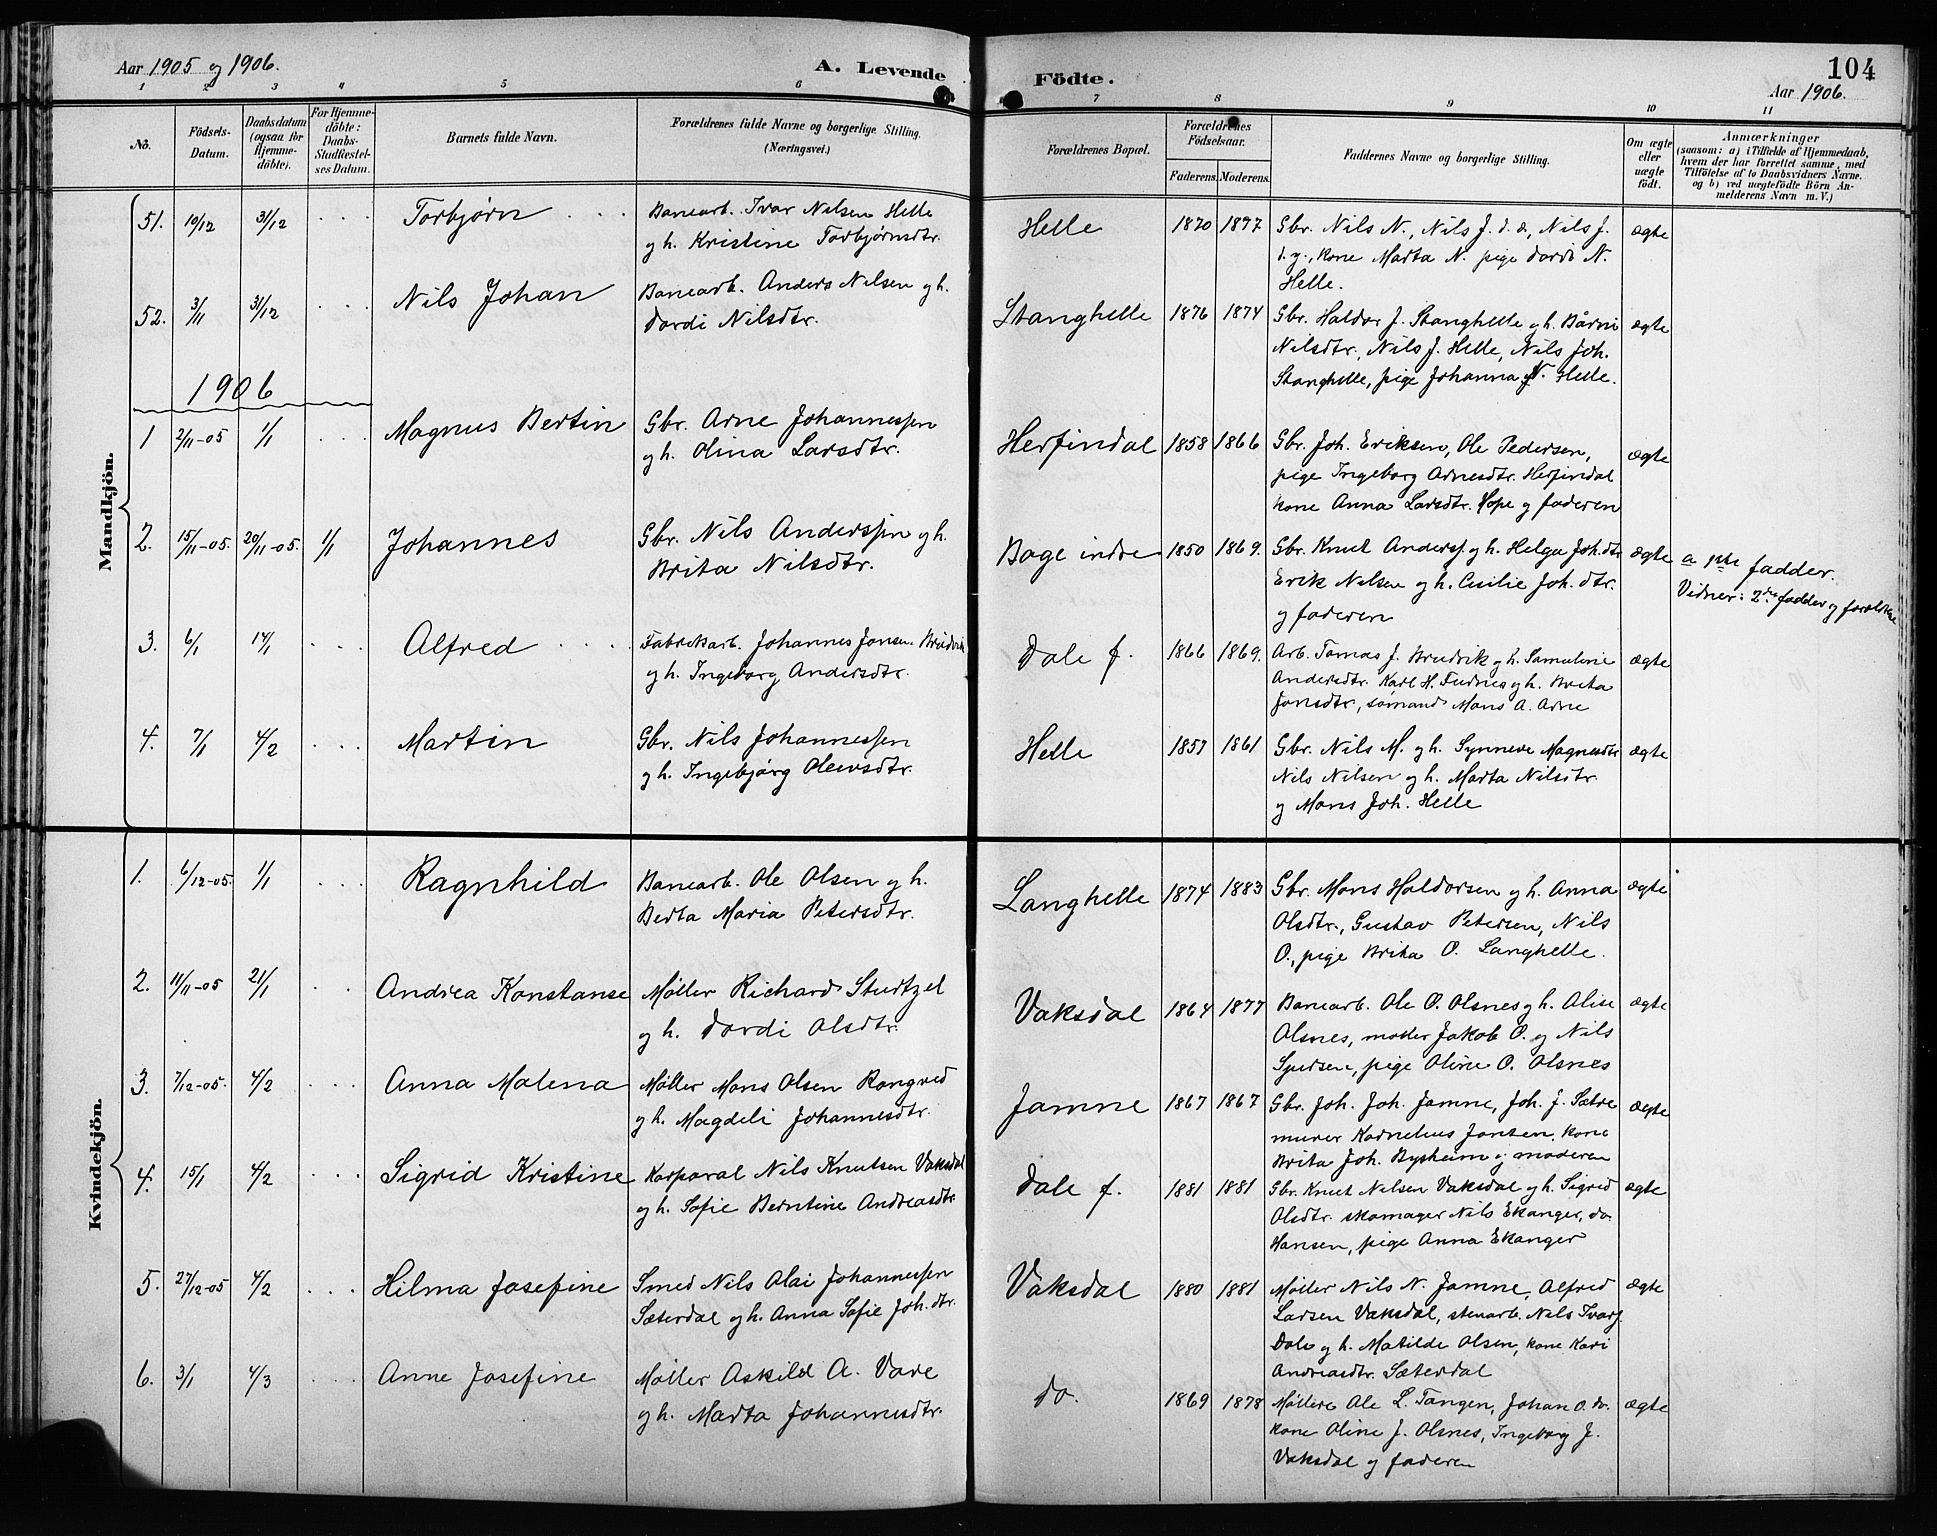 Aar 1905 og 1906.
A. Levende
Födte.
104
Aar 1906.
1 2 3 4 5 6 7 8 9 10 11
No.
Födsels-
Datum.
Daabsdatum
(ogsaa for
Hjemme-
döbte).
For Hjemme-
döbte:
Daabs-
Stadfæstel-
ses Datum.
Barnets fulde Navn.
Forældrenes fulde Navne og borgerlige Stilling.
(Næringsvei.)
Forældrenes Bopæl.
Forældrenes
Födselsaar.
Faderens. Moderens.
Faddernes Navne og borgerlige Stilling.
Om ægte
eller
uægte
født.
Anmærkninger
(saasom: a) i Tilfælde af Hjemmedaab,
hvem der har forrettet samme, med
Tilföielse af to Daabsvidners Navne.
og b) ved uægtefödte Börn An-
melderens Navn m. V.)
Mandkjön.
51. 10/12 31/12 . . . Torbjørn . . . Banearb. Ivar Nilsen Helle
og h. Kristine Torbjørnsdtr.
Helle 1870 1877 Gbr. Nils N., Nils J. d. æ., Nils J. ægte
d. y., kone Marta N. pige Dordi N.
Helle.
52. 3/11 31/12 . . . Nils Johan Banearb. Anders Nilsen og h.
Dordi Nilsdtr.
Stanghelle 1876 1874 Gbr. Haldor J. Stanghelle og h. Bårni ægte
Nilsdtr., Nils J. Helle, Nils Joh.
Stanghelle, pige Johanna N. Helle.
1906
1 2/11-05 1/1 . . . Magnus Bertin Gbr. Arne Johannessen
og h. Olina Larsdtr.
Herfindal 1858 1866 Gbr. Joh. Eriksen, Ole Pedersen, ægte
pige Ingeborg Arnesdtr. Herfindal
kone Anna Larsdtr. Hope og faderen
2. 15/11-05. 20/11-05. 1/1 Johannes Gbr. Nils Anderssen og h.
Brita Nilsdtr.
Boge indre 1850 1869. Gbr. Knut Anderss. og h. Helga Joh.dtr ægte a 1ste fadder.
Erik Nilsen og h. Cecilie Joh. dtr.
og faderen
Vidner: 2den fadder og
3. 6/1 14/1 . . . Alfred . . . . Fabrikarb. Johannes Jonsen Brudvik
og h. Ingeborg Andersdtr.
Dale f. 1866 1869. Arb. Tomas J. Brudvik og h. Samuline ægte
Andersdtr. Karl H. og h. Brita
Jonsdtr., sømand Mons A. Arne
4. 7/1 4/2 . . . Martin Gbr. Nils Johannessen
og h. Ingebjørg Olewsdtr.
Helle 1857 1861 Gbr. Nils M. og h. Synneve Magnusdtr ægte
Nils Nilsen og h. Marta Nilsdtr.
og Mons Joh. Helle
Kvindekjön.
1. 6/12-05. 1/1 . . . Ragnhild Banearb. Ole Olsen og h.
Berta Maria Petersdtr.
Langhelle 1874 1883 Gbr. Mons Haldorsen og h. Anna ægte
Olsdtr., Gustav Petersen, Nils
O., pige Brita O. Langhelle.
2. 11/11-05 21/1 . . Andrea Konstanse Møller Richard Studtzel
og h. Dordi Olsdtr.
Vaksdal 1864 1877 Banearb. Ole O. Olsnes og h. Alise ægte
Olsnes, møller Jakob O. og Nils
Sjursen, pige Oline O. Olsnes
3. 7/12-05. 4/2 . . . Anna Malena Møller Mons Olsen Rongved
og h. Magdeli Johannesdtr.
Jamne 1867 1867 Gbr. Joh. Joh. Jamne, Joh. J. Sætre ægte
murer Kornelius Jonsen, kone
Brita Joh. Bysheim og moderen
4. 15/1 4/2 . . . Sigrid Kristine Korporal Nils Knutsen Vaksdal
og h. Sofie Berntine Andreasdtr
Dale f. 1881 1881 Gbr. Knut Nilsen Vaksdal og h. Sigrid ægte
Olsdtr. skomager Nils Ekanger, do.
Hansen, pige Anna Ekanger
5. 27/12-05 4/2 . . . Hilma Josefine Smed Nils Olai Johannessen
Sæterdal og h. Anna Sofie Joh. dtr.
Vaksdal 1880 1881 Møller Nils N. Jamne, Alfred ægte
Larsen Vaksdal, stenarb. Nils Ivars.
Dale og h. Matilde Olsen, kone Kari
Andreasdtr. Sæterdal
6. 3/1 4/3 . . . Anne Josefine Møller Askild A. Vare
og h. Marta Johannesdtr.
do. 1869 1878 Møllere Ole L. Tangen, Johan O. do. ægte
kone Oline J. Olsnes, Ingeborg J.
Vaksdal og faderen